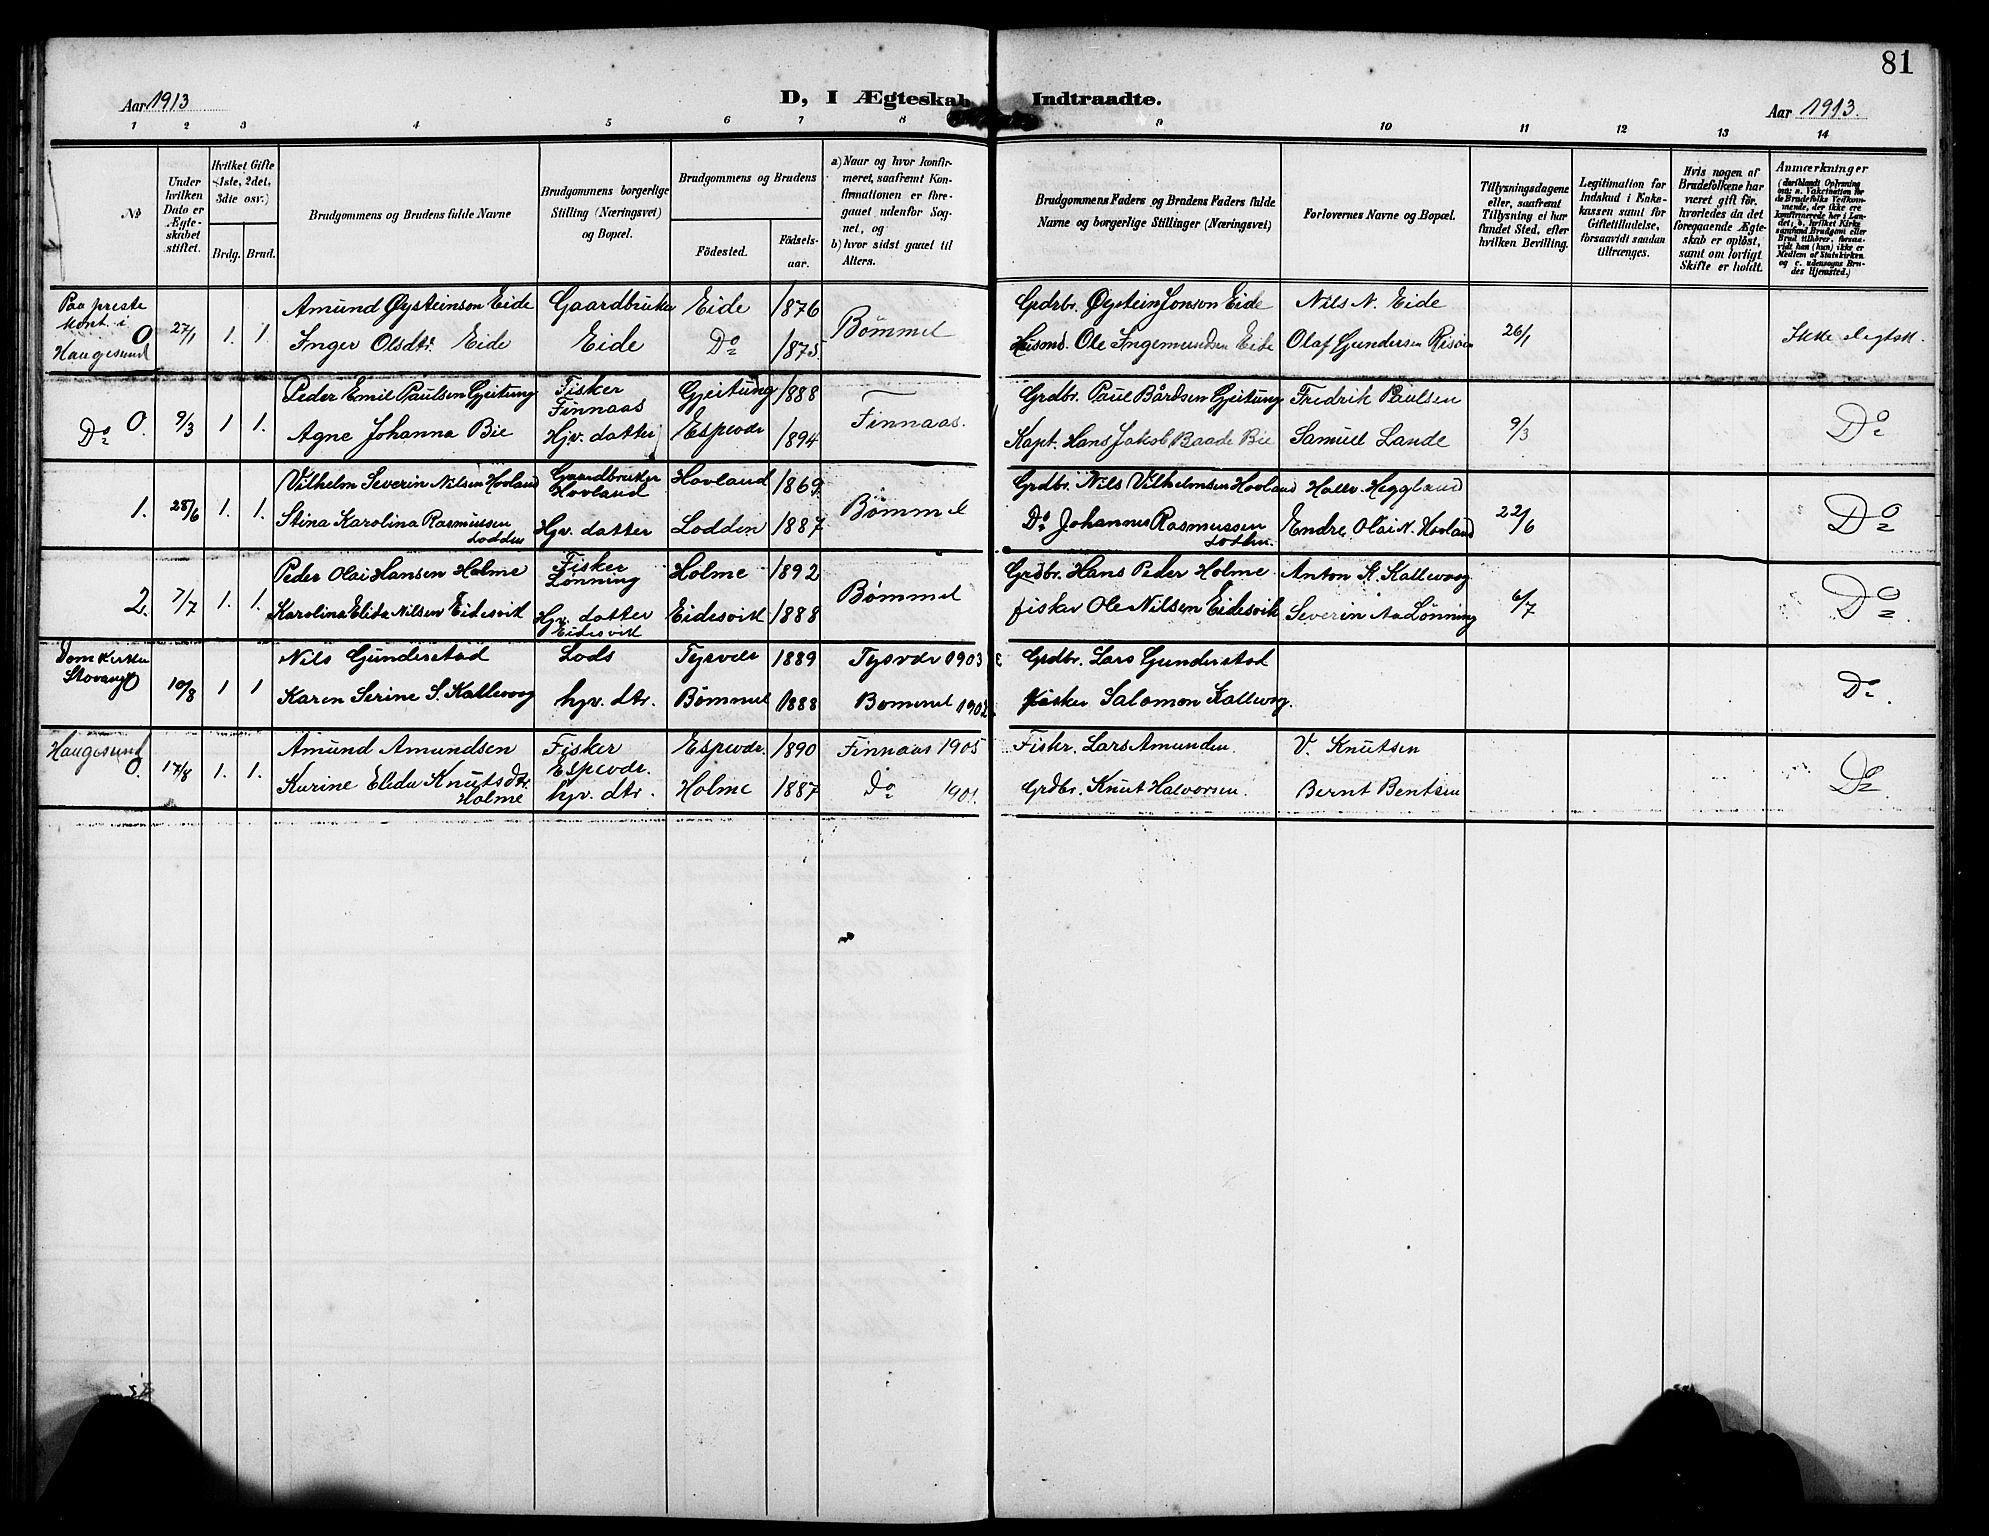 81
Aar 1913
D, I Ægteskab Indtraadte.
Aar 1913.
1 2 3 4 5 6 7 8 9 10 11 12 13 14
№
Under hvilken Dato er Ægteskabet stiftet.
Hvilket Gifte 1ste, 2det, 3die osv.)
Brdg. Brud.
Brudgommens og Brudens fulde Navne
Brudgommens borgerlige Stilling (Næringsvei) og Bopæl.
Brudgommens og Brudens
Födested.
Födselsaar.
a) Naar og hvor konfirmeret, saafremt Konfirmationen er foregaaet udenfor Sognet, og
b) hvor sidst gaaet til Alters.
Brudgommens Faders og Brudens Faders fulde Navne og borgerlige Stillinger (Næringsvei)
Forlovernes Navne og Bopæl.
Tillysningsdagene eller, saafremt Tillysning ei har fundet Sted, efter hvilken Bevilling.
Legitimation for Indskud i Enkekassen samt for Giftetilladelse, forsaavidt saadan tiltrænges.
Hvis nogen af Brudefolkene har været gift för, hvorledes da det foregaaende Ægteskab er oplöst, samt om lovligt Skifte er holdt.
Anmærkninger
Paa preste kont. i Haugesund
0 27/1 1. 1.
Amund Øysteinson Eide Gaardbruker Eide 1876
Inger Olsdtr. Eide Eide Do 1875 Bømmel
Grdbr. Øystein Jonson Eide Nils N. Eide
Ole Ingemundsen Eide Olaf Gundersen 26/1 Ikke slegtsk.
Do 0. 9/3 1 1.
Peder Emil Paulsen Gjeitung Fisker Finnaas Gjeitung 1888
Agne Johanna Bie Hjv. datter Espevær 1894 Finnaas.
Grdbr. Paul Bårdsen Gjeitung Fredrik Paulsen
Kapt. Hans Jakob Baade Bie Samuel Lande 9/3 Do
1. 28/6 1. 1.
Vilhelm Severin Nilsen Hovland Gaardbruker Hovland Hovland 1869.
Stina Karolina Rasmussen Lodden Hjv. datter Lodden 1887 Bømmel
Grdbr. Nils Vilhelmsen Hovland Hallv. Heggland
Do Johannes Rasmussen Lodden. Endre Olai N. Hovland 22/6 Do
2. 7/7 1. 1.
Peder Olai Hansen Holme Fisker Lønning Holme 1892
Karolina Elida Nilsen Eidesvik Hjv. datter Eidesvik Eidesvik 1888 Bømmel
Grdbr. Hans Peder Holme Anton K. Kallevaag
fisker Ole Nilsen Eidesvik Severin Aa Lønning 6/7 Do
Domkirken Stavanger 0 10/8 1 1
Nils Gunderstad Lods Tysvær 1889 Tysvær 1903
Karen Serine S. Kallevaag hjv. dtr. Bømmel 1888 Bømmel 1902
Grdbr. Lars Gunderstad
Fisker Salomon Kallevag. Do.
Haugesund 0. 17/8 1. 1.
Amund Amundsen Fisker Espevær. Espevær. 1890 Finnaas 1905
Karine Elida Knutsdtr. Holme hjv. dtr. Holme 1887 Do 1901.
Fisker. Lars Amunden. V. Knutsen
Grdbr. Knut Halvorsen. Bernt Bentsen Do